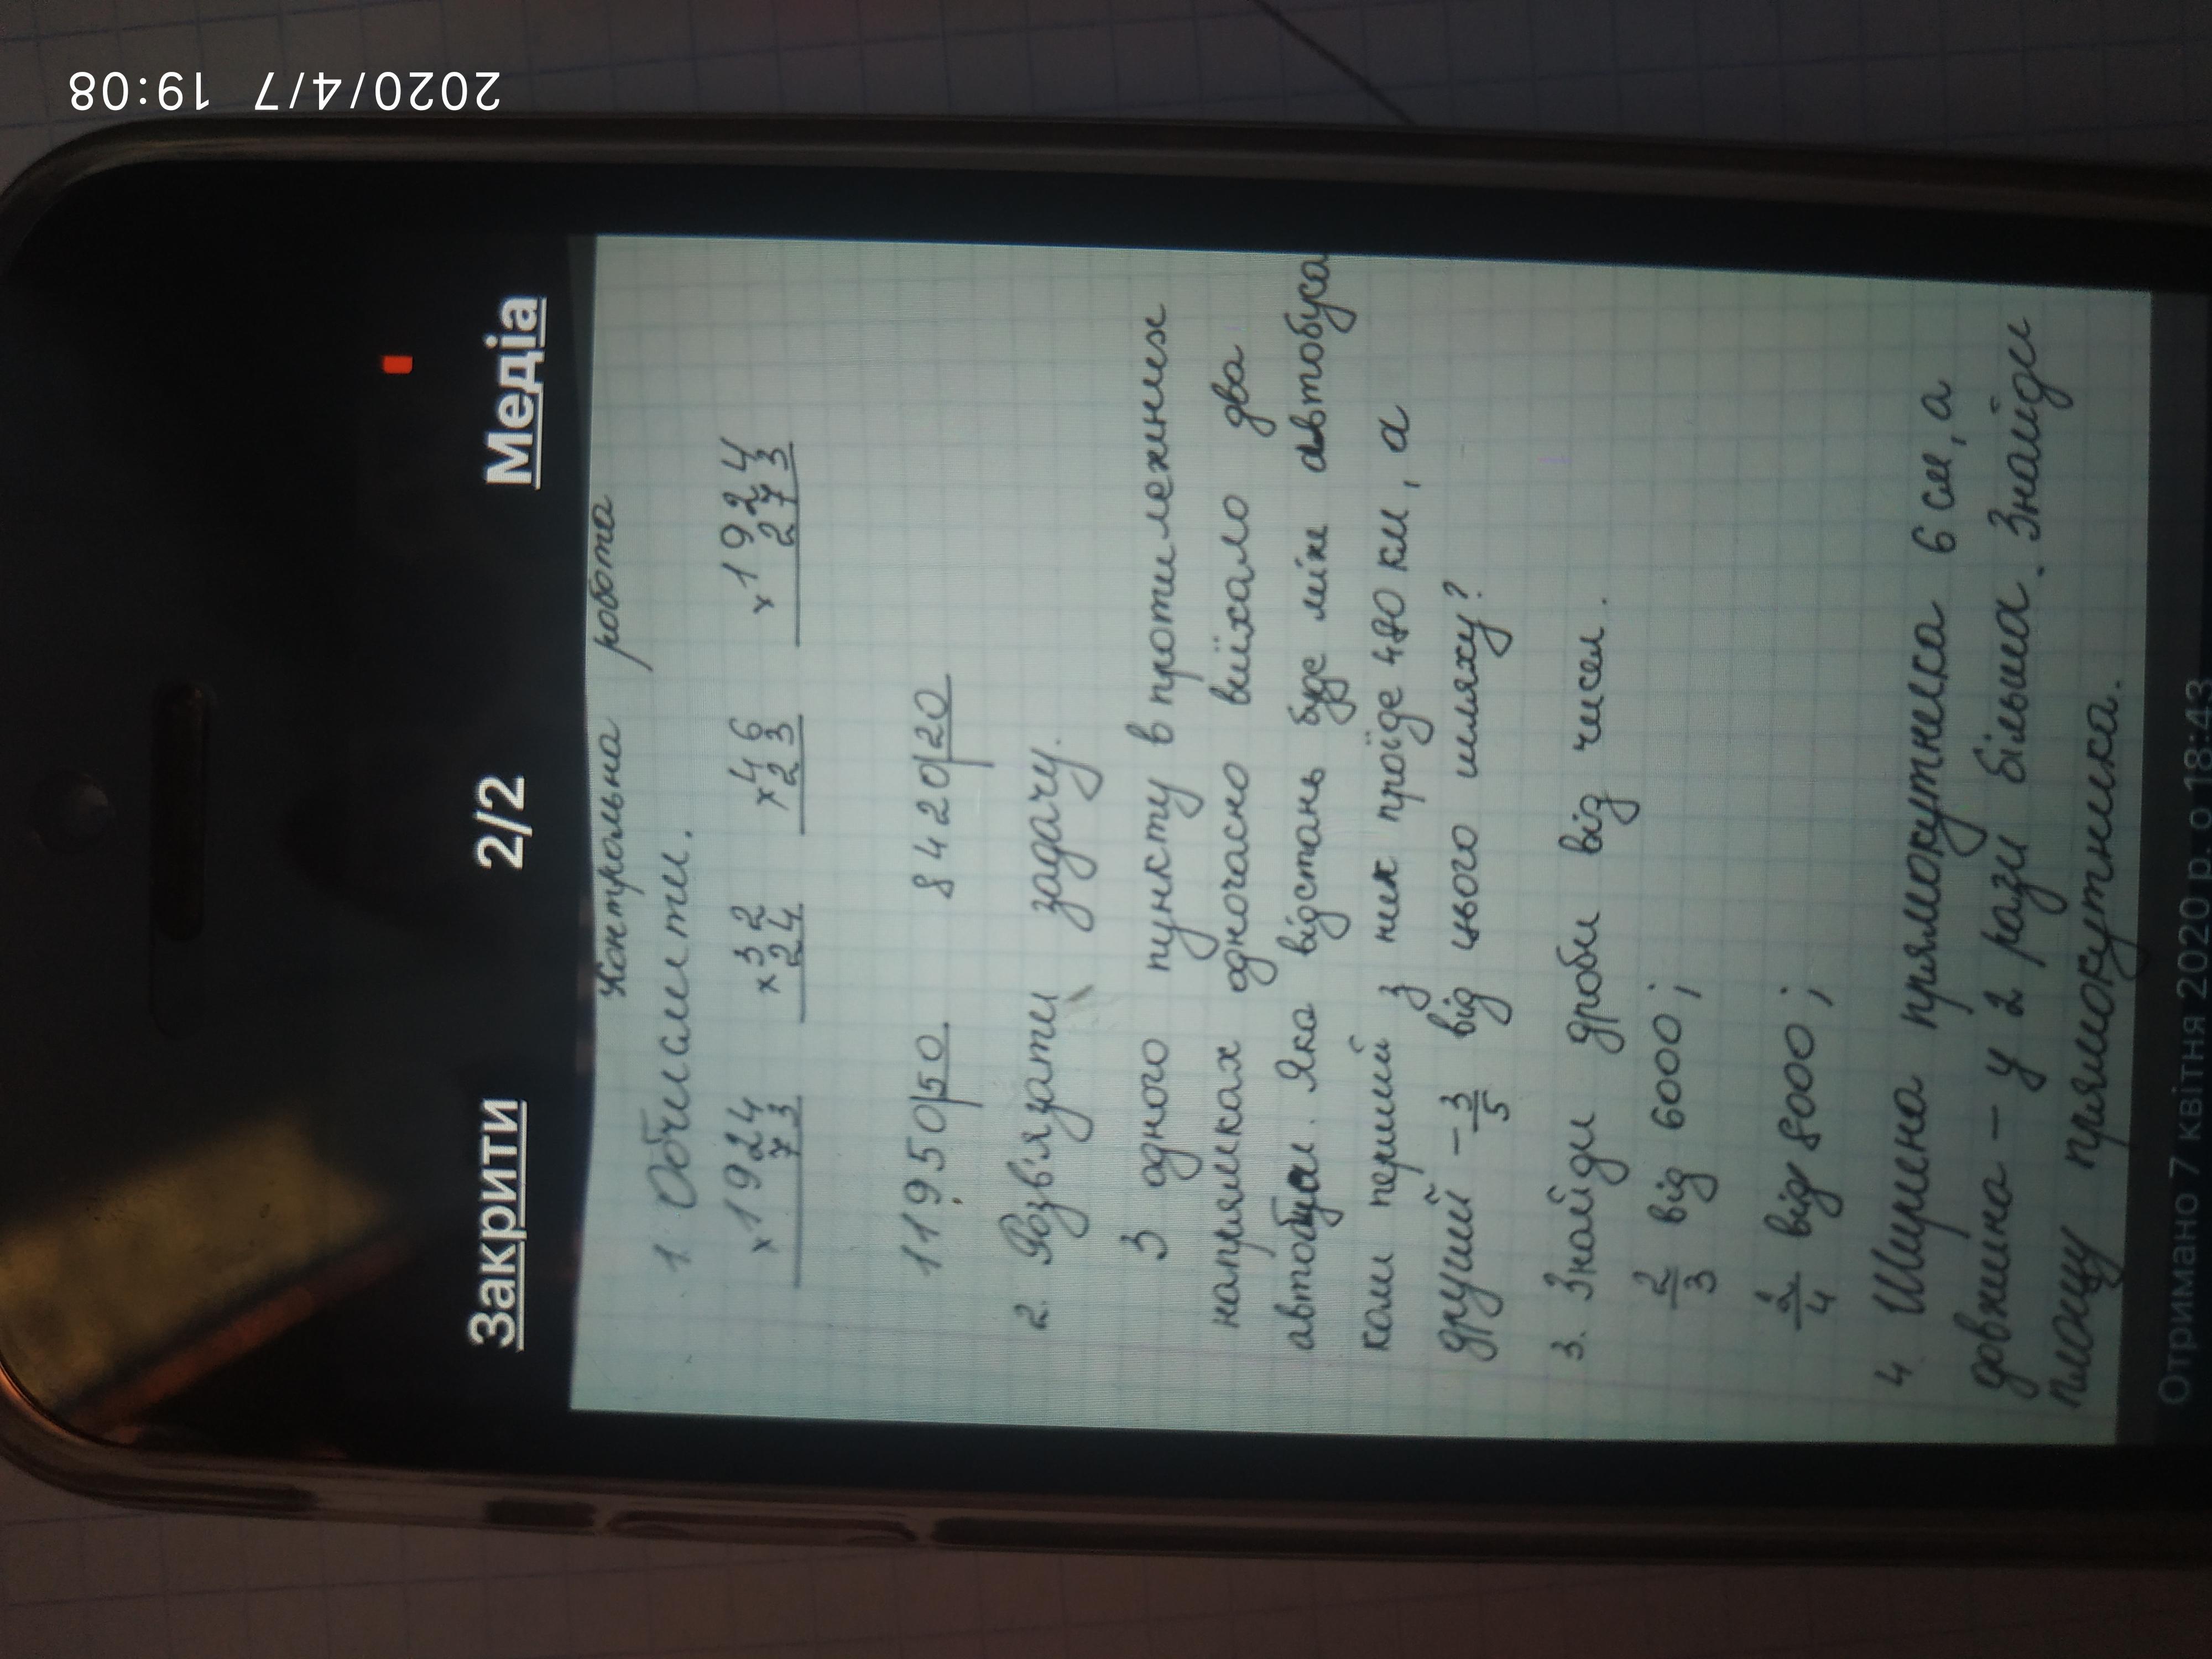 2020/4/7 19:08
Закрити 2/2 Медіа
Контрольна робота
1. Обчислити.
×1924 ×32 ×46 ×1924
73 24 23 273
11950|50 8420|20
2. Розв'язати задачу.
З одного пункту в протилежних
напрямках одночасно виїхало два
автобуси. Яка відстань буде між автобуса
коли перший з них проїде 480 км, а
другий – 3/5 від цього шляху?
3. Знайди дроби від чисел.
2/3 від 6000;
/4 від 8000;
4. Ширина прямокутника 6 см, а
довжина – у 2 рази більша. Знайди
площу прямокутника.
Отримано 7 квітня 2020 р. о 18:43